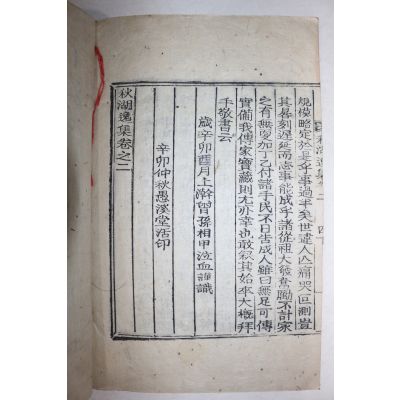 規模略定於是乎事過半矣世逮人亡痛哭叵測豈
其晷刻遲延而志事能成乎諸從祖大發奮勵不計家
之有無爰加丁乙付諸手民不日告成人雖曰無足可傳
實備我傳家寶藏則尤亦幸也敢敘其始卒大槪拜
手敬書云
歲辛卯酉月上澣曾孫相甲泣血謹識
辛卯仲秋愚溪堂活印
秋湖逸集卷之二